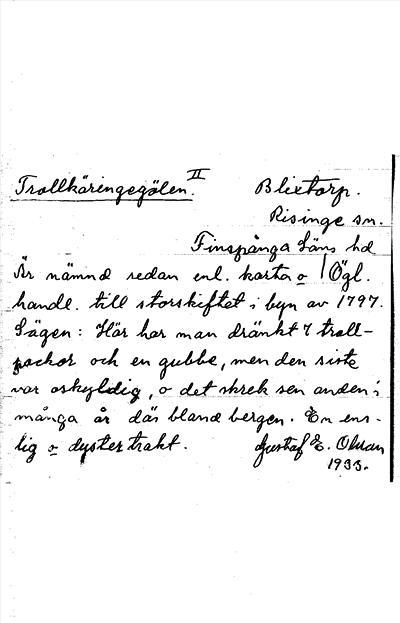 Trollkäringegölen. II Blixtorp.
Risinge sn.
Finspånga Läns hd
Är nämnd redan enl. karta o | Ögl.
handl. till storskiftet i byn av 1797.
Sägen: Här har man dränkt 7 troll-
packor och en gubbe, men den siste
var oskyldig, o det skrek sen anden i
många år där bland bergen. En ens-
lig o dyster trakt. Gustaf E. Olman
1933.